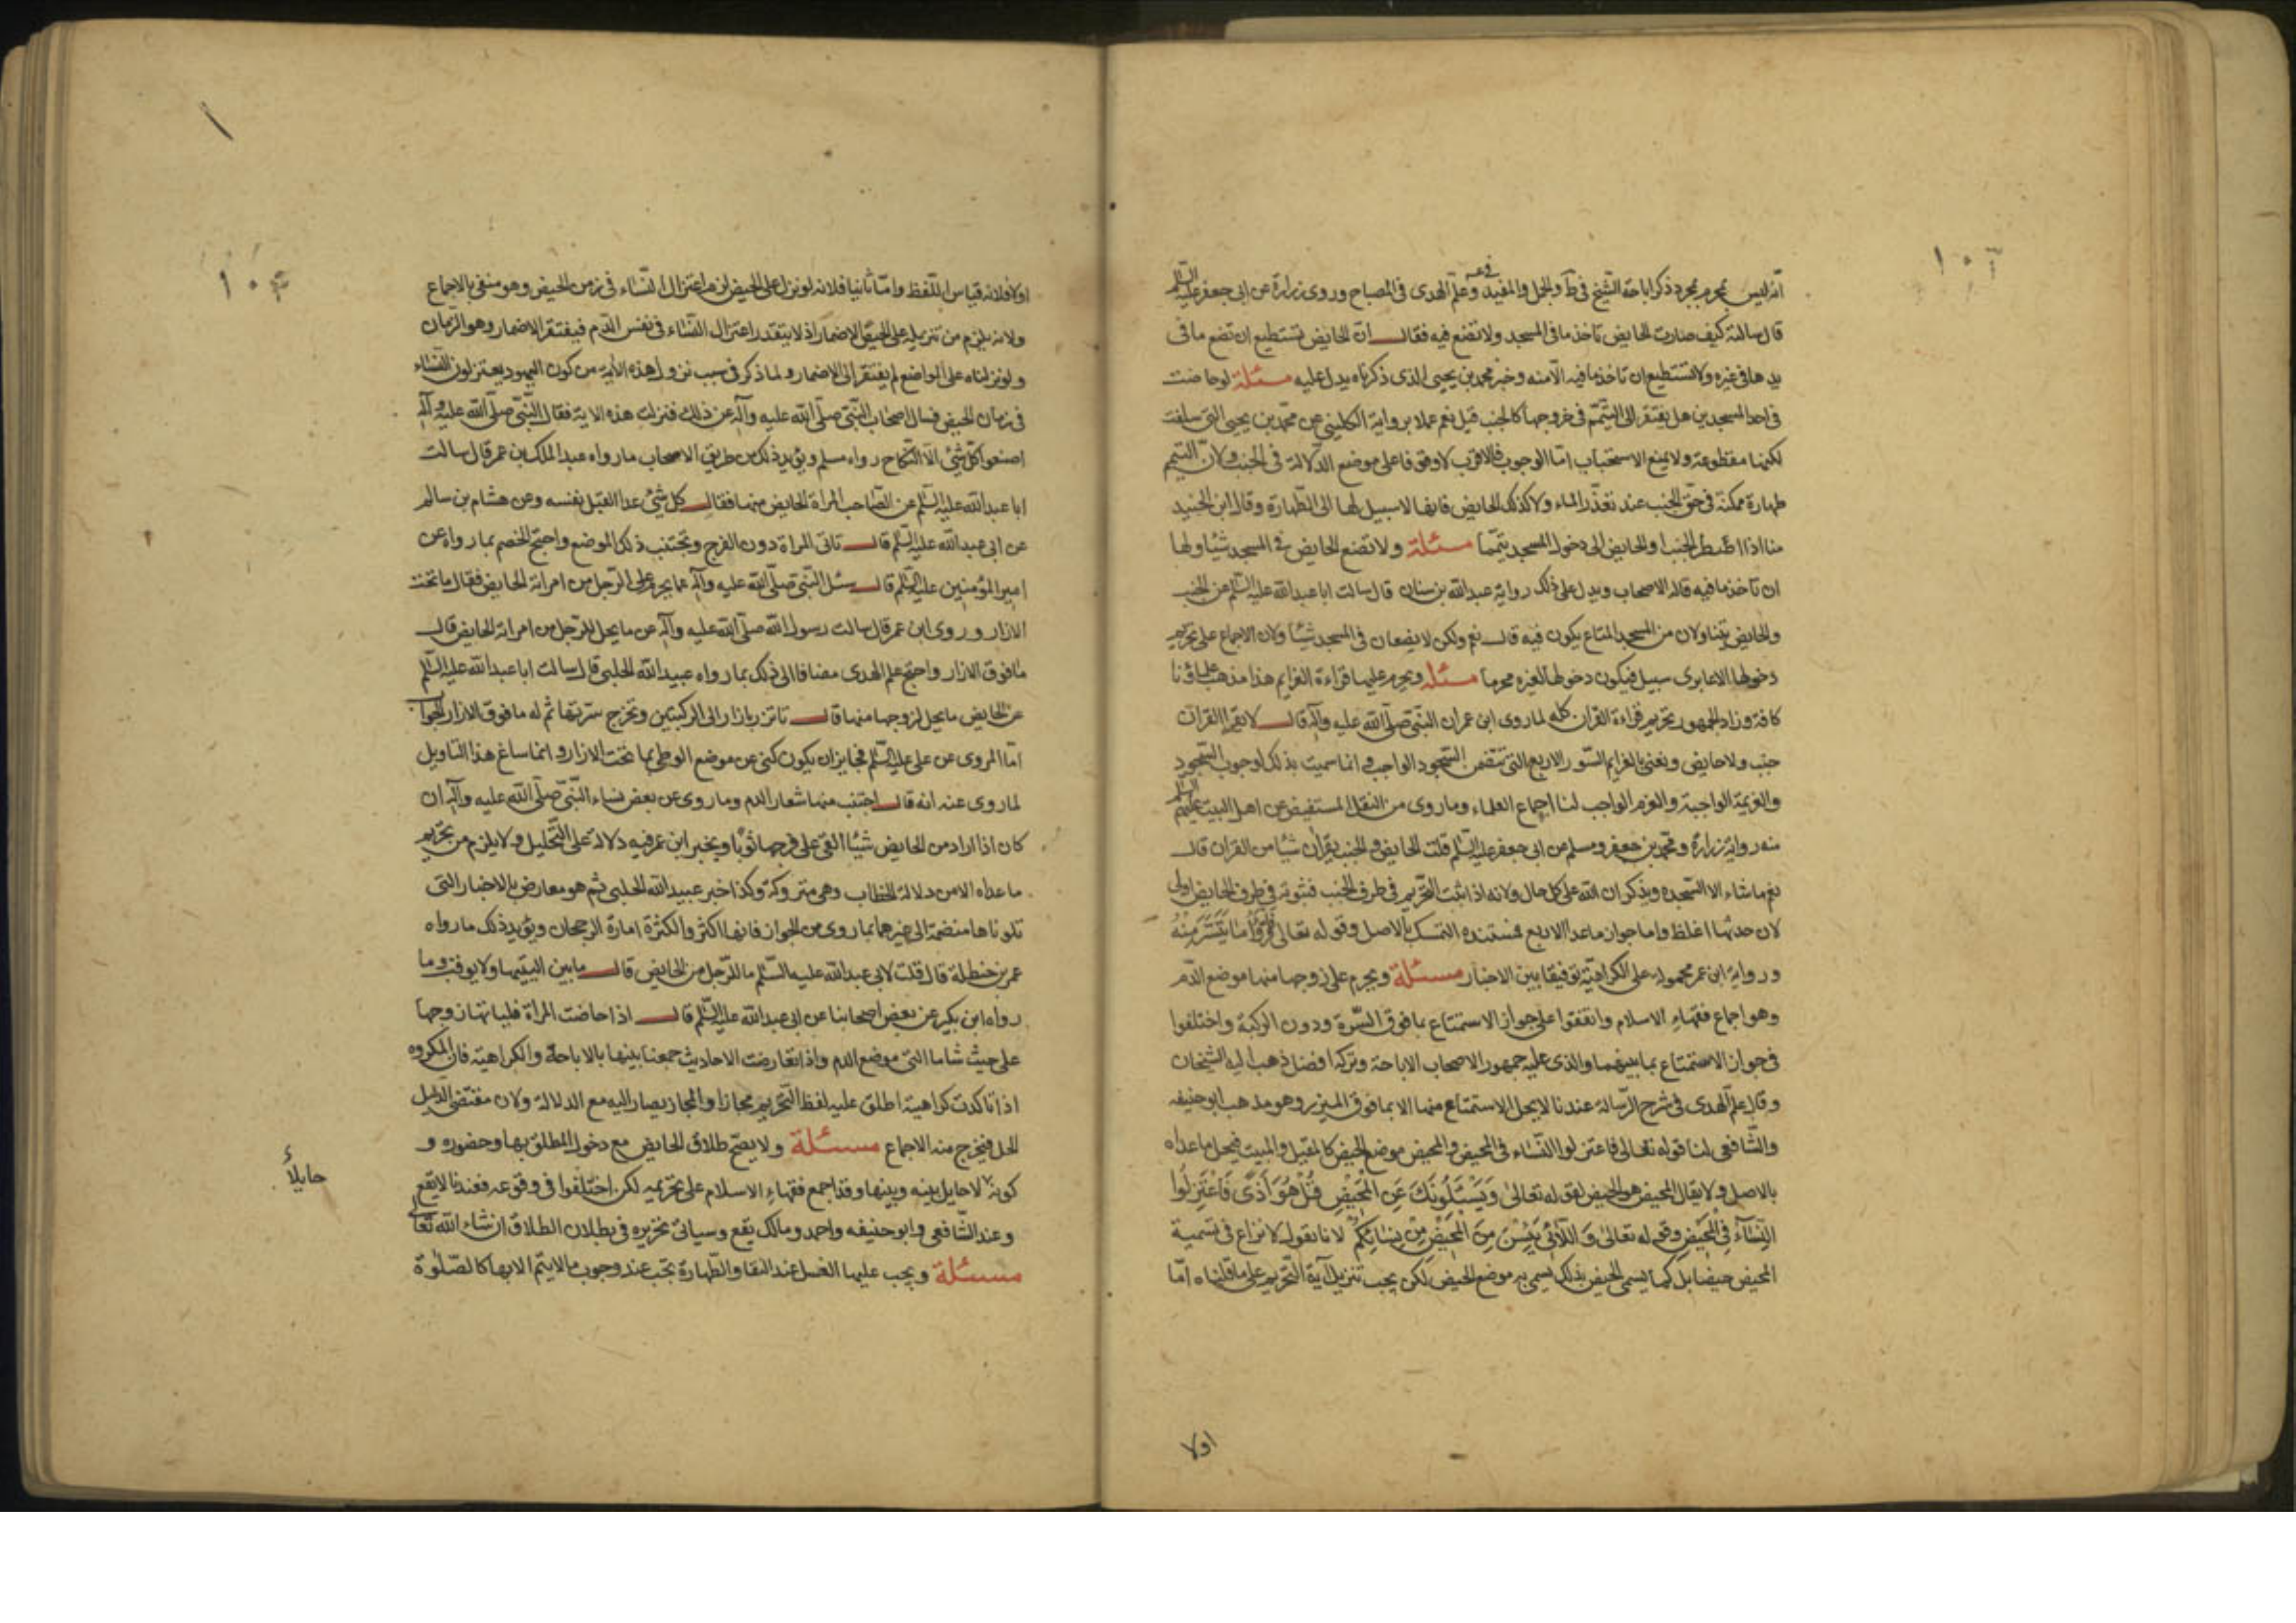 انه ليس بمحرم مجرد ذكر اباحة الشيخ في ط والجمل والمفيد وعلم الهدى في المصباح وروى زرارة عن ابى جعفر عليه السلم
قال سالته كيف صارت الحايض تاخذ ما فى المسجد ولا تضع فيه فقال ان الحايض تستطيع ان تضع ما فى
يدها فى غيره ولا تستطيع ان تاخذ ما فيه الا منه وخبر محمد بن يحيى الذى ذكرناه يدل عليه مسئلة لو حاضت
فى احد المسجدين هل يفتقر الى التيمم فى خروجها كالجنب قيل نعم عملا برواية الكلينى عن محمد بن يحيى التى سلفت
لكنها مقطوعة ولا يمنع الاستحباب امّا الوجوب فالاقرب لا وقوفا على موضع الدلالة فى الجنب ولان التيمم
طهارة ممكنة فى حق الجنب عند تعذر الماء ولا كذلك الحايض فانها لا سبيل لها الى الطهارة وقال ابن الجنيد
منا اذا اضطر الجنب او الحايض الى دخول المسجد يتمما مسئلة ولا تضع الحايض فى المسجد شيئا ولها
ان تاخذ ما فيه قاله الاصحاب ويدل على ذلك رواية عبدالله بن سنان قال سالت ابا عبدالله عليه السلم عن الجنب
والحايض يتناولان من المسجد المتاع يكون فيه قال نعم ولكن لا يضعان فى المسجد شيئا ولان الاجماع على تحريم
دخولها الا عابرى سبيل فيكون دخولها لغيره محرما مسئلة ويحرم عليها قراءة العزايم هذا مذهب علمائنا
كافة وزاد الجمهور تحريم قراءة القران كله لما روى ابن عمر ان النبى صلى الله عليه وآله قال لا يقرا القران
جنب ولا حايض ونعنى بالعزايم السور الاربع التى تتضمن السجود الواجب وانما سميت بذلك لوجوب السجود
والعزيمة الواجبة والعزم الواجب لنا اجماع العلماء وما روى من النقل المستفيض عن اهل البيت عليهم السلم
منه رواية زرارة ومحمد بن جعفر ومسلم عن ابى جعفر عليه السلم قلت الحايض والجنب يقران شيئا من القران قال
نعم ما شاء الا السجدة ويذكران الله على كل حال ولانه اذا ثبت التحريم فى طرف الجنب فثبوته فى طرف الحايض اولى
لان حدثها اغلظ واما جواز ما عدا الاربع فمستنده التمسك بالاصل وقوله تعالى فَاقْرَؤُا مَا تَيَسَّرَ مِنْهُ
ورواية ابن عمر محمولة على الكراهية توفيقا بين الاخبار مسئلة ويحرم على زوجها منها موضع الدم
وهو اجماع فقهاء الاسلام واتفقوا على جواز الاستمتاع بما فوق السّرة ودون الركبة واختلفوا
فى جواز الاستمتاع بما بينهما والذى عليه جمهور الاصحاب الاباحة وتركه افضل ذهب اليه الشيخان
وقال علم الهدى فى شرح الرسالة عندنا لا يحل الاستمتاع منها الا بما فوق الميزر وهو مذهب ابو حنيفه
والشافعى لنا قوله تعالى فاعتزلوا النّساء فى المحيض والمحيض موضع الحيض كالمقيل والمبيت فيحل ما عداه
بالاصل ولا يقال المحيض هو الحيض لقوله تعالى وَيَسْئَلُونَكَ عَنِ الْمَحِيضِ قُلْ هُوَ اَذًى فَاعْتَزِلُوا
النِّسَاءَ فِى الْمَحِيضِ وقوله تعالى وَ اللَّائِى يَئِسْنَ مِنَ الْمَحِيضِ مِنْ نِسَائِكُمْ لانا نقول لا نزاع فى تسمية
المحيض حيضا بل كما يسمى الحيض بذلك يسمى به موضع الحيض لكن يجب تنزيل آية التحريم على ما قلناه امّا
اولا
اولا فلانه قياس اللفظ وامّا ثانيا فلانه لو نزل على الحيض لزم اعتزال النساء فى زمن الحيض وهو منفى بالاجماع
ولانه يلزم من تنزيله على الحيض الاضمار اذ لا يتقدر اعتزال النساء فى نفس الدم فيفتقر الاضمار وهو الزمان
ولو نزلناه على المواضع لم يفتقر الى الاضمار ولما ذكر فى سبب نزول هذه الاية من كون اليهود يعتزلون النساء
فى زمان الحيض فسال اصحاب النّبى صلّى الله عليه وآله عن ذلك فنزلت هذه الاية فقال النّبى صلّى الله عليه وآله
اصنعوا كل شىء الا النكاح رواه مسلم ويؤيد ذلك من طريق الاصحاب ما رواه عبدالملك بن عمر قال سالت
ابا عبدالله عليه السّلم عن الصاحب المراة الحايض منها فقال كل شىء عدا القبل بنفسه وعن هشام بن سالم
عن ابى عبدالله عليه السّلم قال تاتى المراة دون الفرج وتجتنب ذلك الموضع واحتج الخصم بما رواه عن
امير المؤمنين عليه السّلم قال سئل النّبى صلّى الله عليه وآله عما يحرم على الرّجل من امراته الحايض فقال ما تحت
الازار وروى ابن عمر قال سالت رسول الله صلى الله عليه وآله عن ما يحل للرّجل من امراته الحايض قال
ما فوق الازار واحتج علم الهدى مضافا الى ذلك بما رواه عبيدالله الحلبى قال سالت ابا عبدالله عليه السلم
عن الحايض ما يحل لزوجها منها قال تاتزر بازار الى الركبتين وتخرج سرتها ثم له ما فوق الازار الجواب
امّا المروى عن على عليه السّلم فجايز ان يكون كنى عن موضع الوطى بما تحت الازار وانما ساغ هذا التاويل
لما روى عنه انه قال اجتنب منها شعار الدم وما روى عن بعض نساء النّبى صلّى الله عليه وآله ان
كان اذا اراد من الحايض شيئا القى على فرجها ثوبًا وبخبر ابن عمر فيه دلالة على التّحليل ولا يلزم من تحريم
ما عداه الا من دلالة الخطاب وهى متروكة وكذا خبر عبيدالله الحلبى ثم هو معارض بالاخبار التى
تلوناها منضمة الى غيرها بما روى من الجواز فانها اكثر والكثرة امارة الرجحان ويؤيد ذلك ما رواه
عمر بن حنظلة قال قلت لابى عبدالله عليه السّلم ما للرّجل من الحايض قال ما بين اليتيها ولا يوقب وما
رواه ابن بكير عن بعض اصحابنا عن ابى عبدالله عليه السّلم قال اذا حاضت المراة فلياتها زوجها
على حيث شاء ما اتقى موضع الدم واذا تعارضت الاحاديث جمعنا بينها بالاباحة والكراهية فان المكروه
اذا تاكدت كراهيته اطلق عليه لفظ التّحريم مجازا والمجاز يصار اليه مع الدلالة ولان مقتضى الدليل
الحل فيخرج منه الاجماع مسئلة ولا يصحّ طلاق الحايض مع دخول المطلق بها وحضوره و
كونها لا حايل بينه وبينها وقد اجمع فقهاء الاسلام على تحريمه لكن اختلفوا فى وقوعه فعندنا لا يقع
حايلاً
وعند الشّافعى وابو حنيفه واحمد ومالك يقع وسياتى تحريره فى بطلان الطلاق ان شاء الله تعالى
مسئلة ويجب عليها الغسل عند النقا والطّهارة تجب عند وجوب ما لا يتم الا بها كالصّلوة